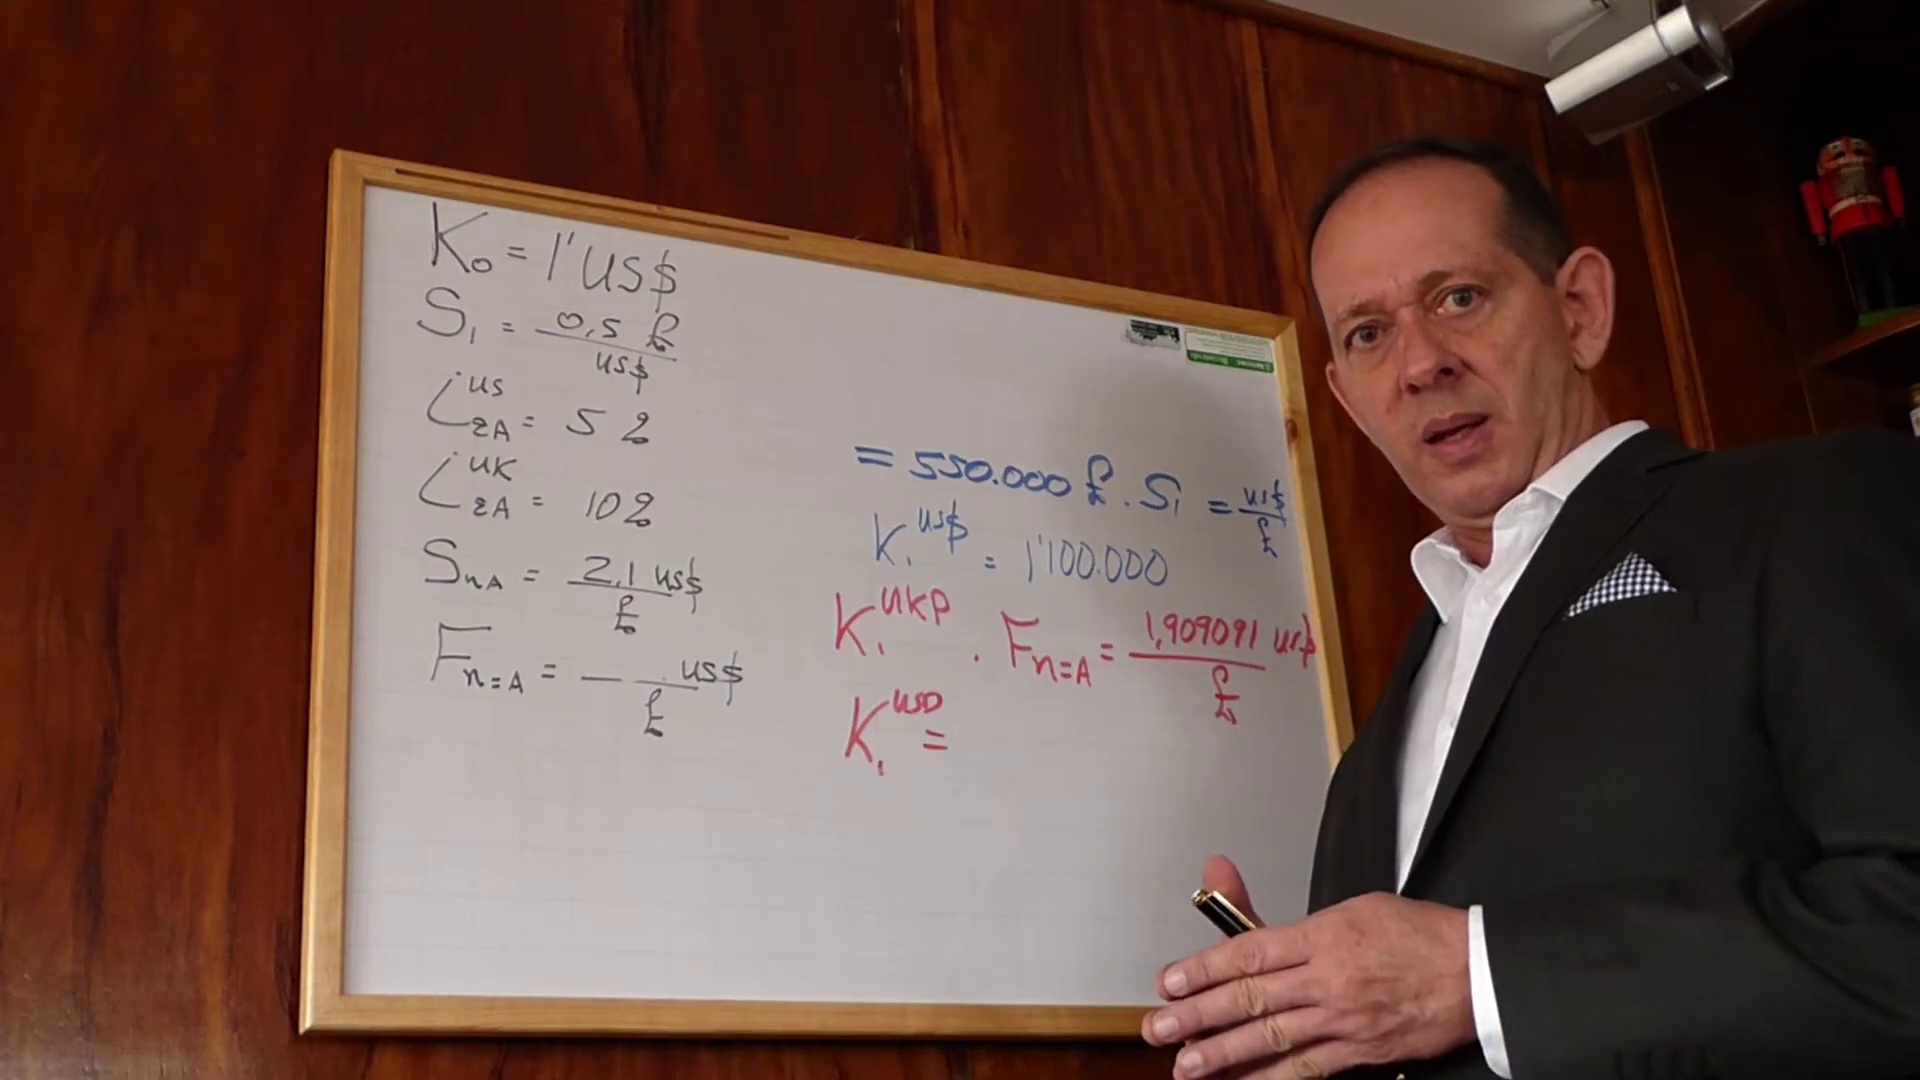 K₀ = 1' US$
S₁ = 0,5 £ / US$
i US εA = 5 %
i UK εA = 10 %
S nA = 2,1 US$ / £
F n=A = — US$ / £
= 550.000 £ . S₁ = US$ / £
K₁ US$ = 1'100.000
K₁ UKP . F n=A = 1,909091 US$ / £
K₁ USD =